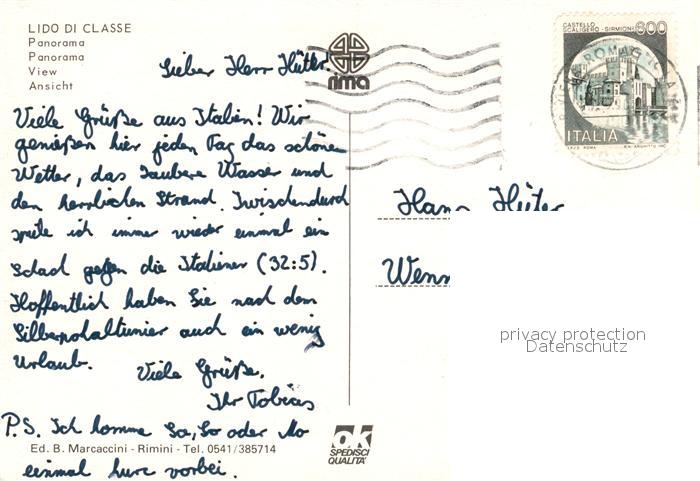 LIDO DI CLASSE
Panorama
Panorama
View
Ansicht
rima
CASTELLO
SCALIGERO - SIRMIONE 600
ITALIA
ROMAGN
Lieber Herr Hütter!
Viele Grüße aus Italien! Wir
genießen hier jeden Tag das schöne
Wetter, das saubere Wasser und
den herrlichen Strand. Zwischendurch
spiele ich immer wieder einmal ein
Schach gegen die Italiener (32:5).
Hoffentlich haben Sie nach dem
Silberpokalturnier auch ein wenig
Urlaub.
Viele Grüße.
Ihr Tobias
P.S. Ich komme Sa, So oder Mo
einmal kurz vorbei.
Ed. B. Marcaccini - Rimini - Tel. 0541/385714
ok
SPEDISCI
QUALITA'
Hans Hüter
Wenn
privacy protection
Datenschutz